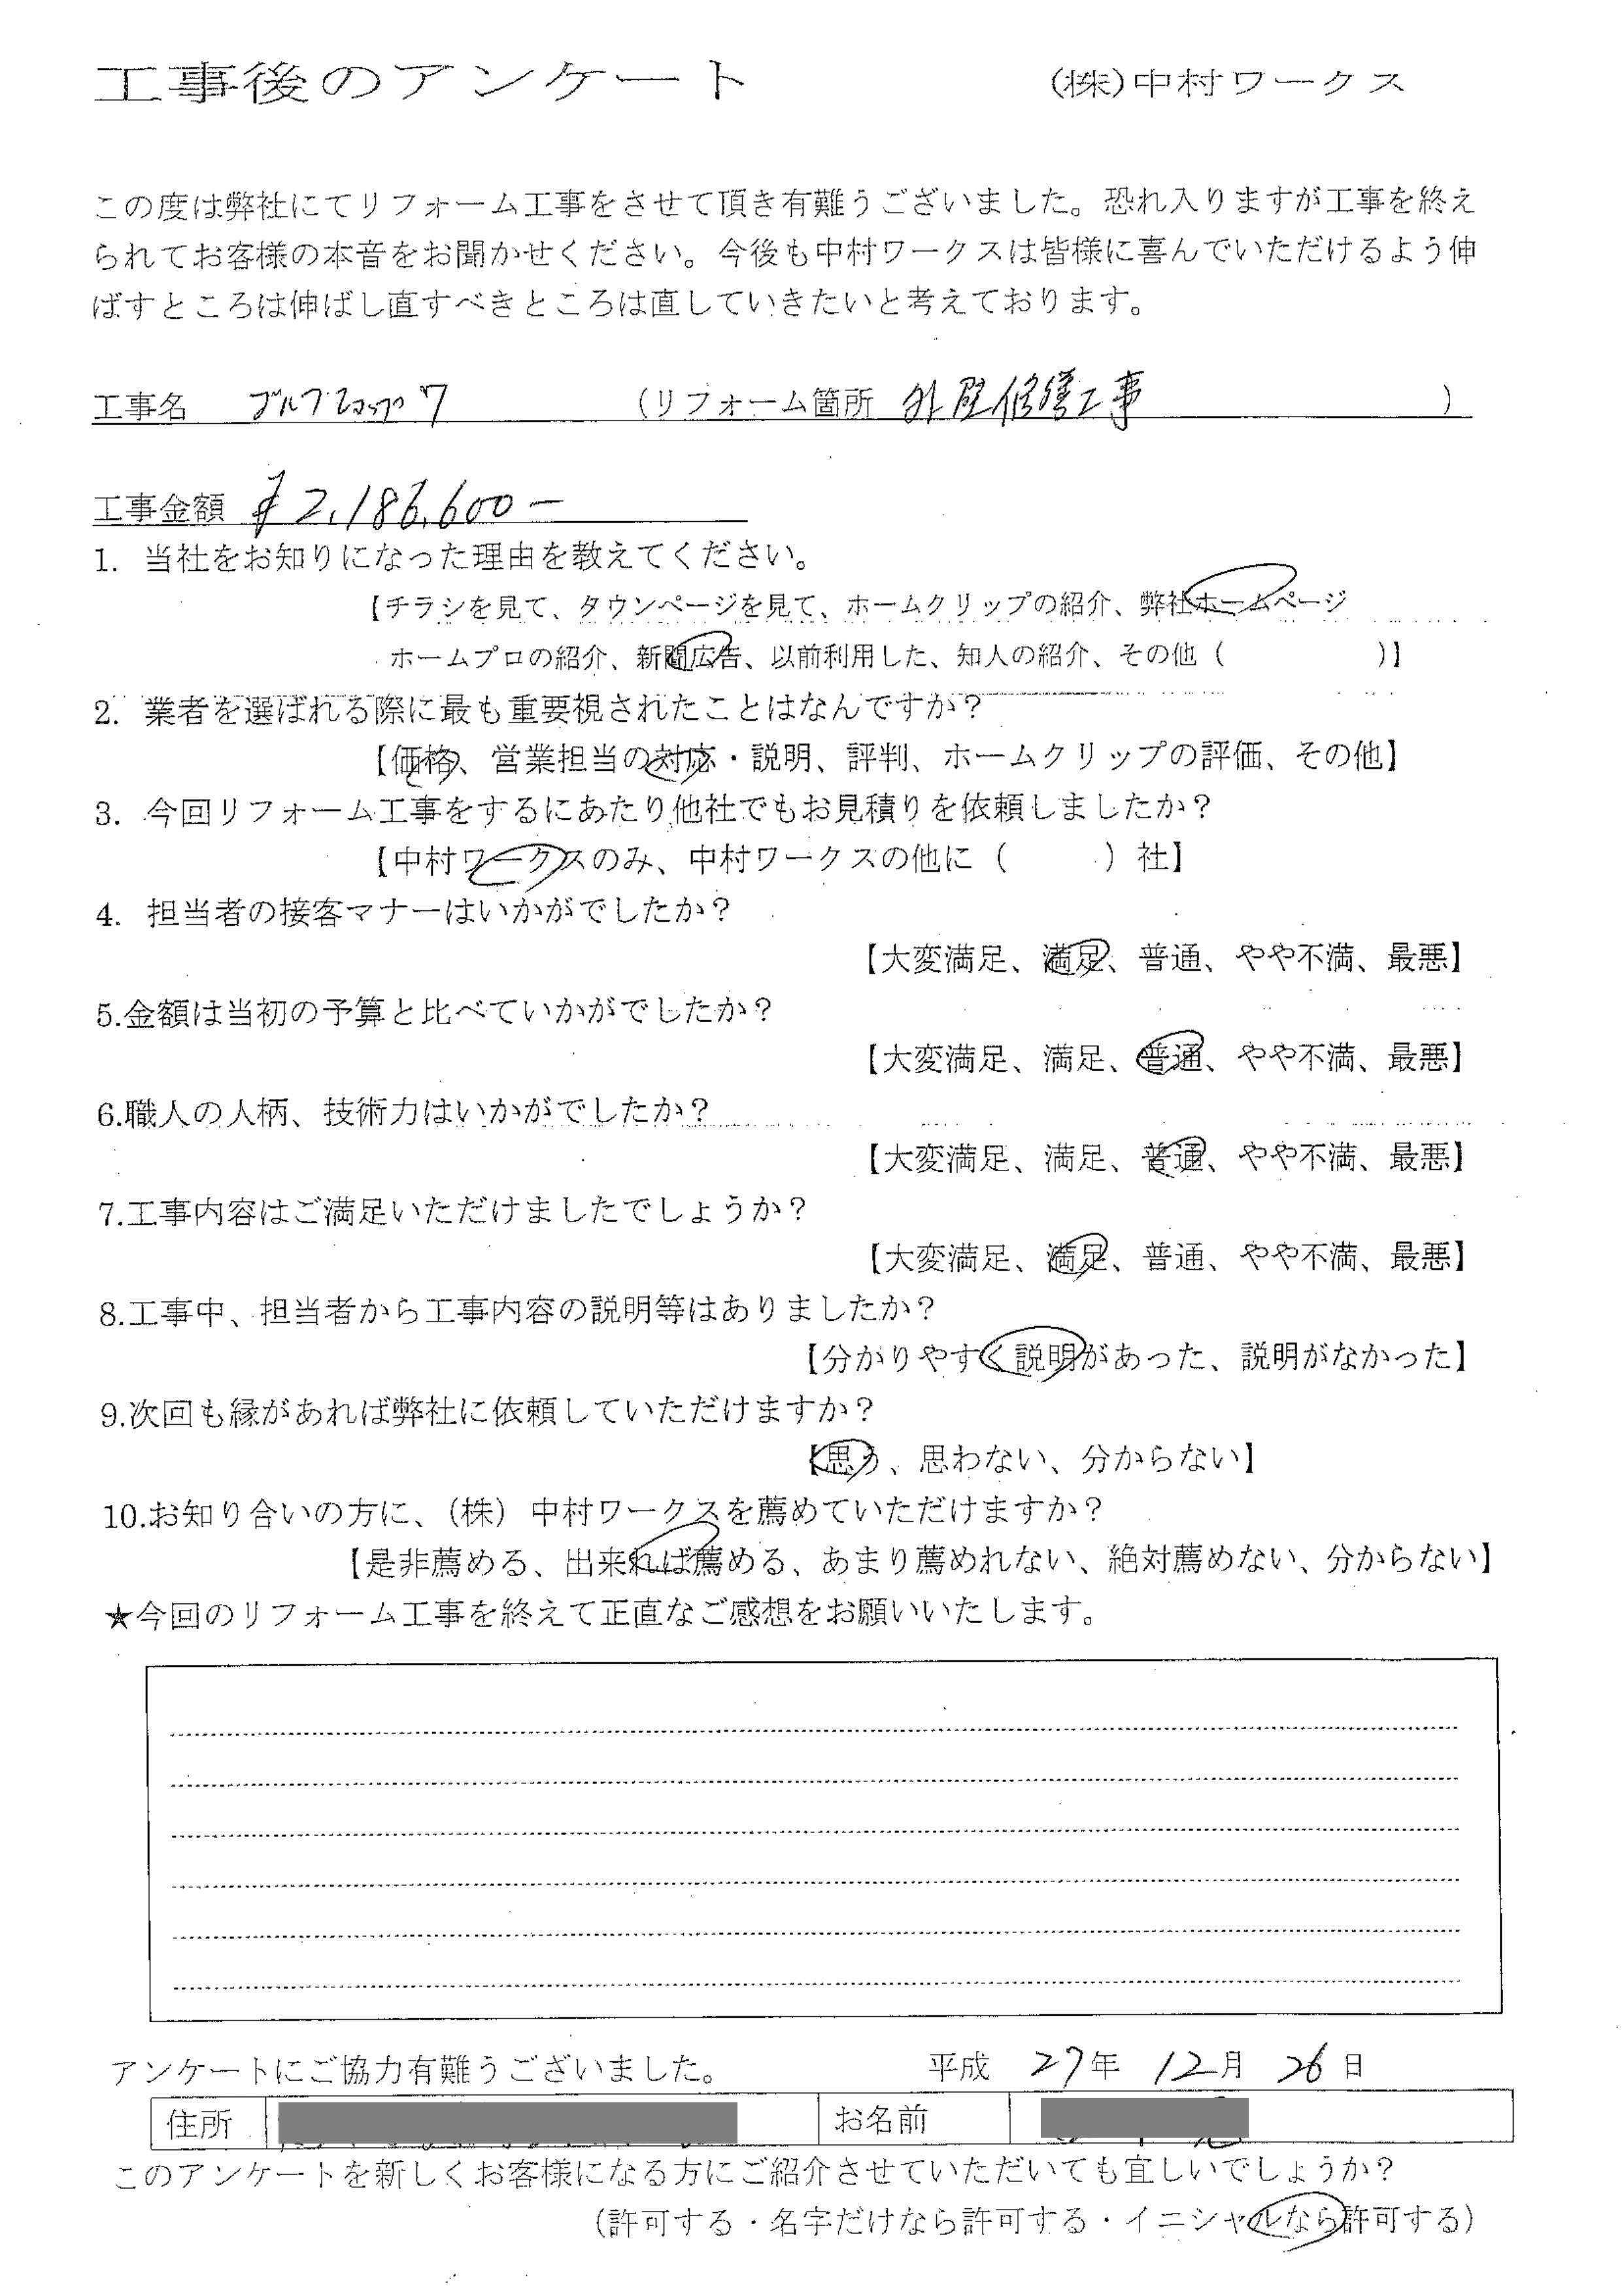 工事後のアンケート (株)中村ワークス
この度は弊社にてリフォーム工事をさせて頂き有難うございました。恐れ入りますが工事を終え
られてお客様の本音をお聞かせください。今後も中村ワークスは皆様に喜んでいただけるよう伸
ばすところは伸ばし直すべきところは直していきたいと考えております。
工事名 ゴルフショップ7 (リフォーム箇所 外壁修繕工事 )
工事金額 ¥2,186,600-
1. 当社をお知りになった理由を教えてください。
【チラシを見て、タウンページを見て、ホームクリップの紹介、弊社ホームページ
ホームプロの紹介、新聞広告、以前利用した、知人の紹介、その他( )】
2. 業者を選ばれる際に最も重要視されたことはなんですか?
【価格、営業担当の対応・説明、評判、ホームクリップの評価、その他】
3. 今回リフォーム工事をするにあたり他社でもお見積りを依頼しましたか?
【中村ワークスのみ、中村ワークスの他に( )社】
4. 担当者の接客マナーはいかがでしたか?
【大変満足、満足、普通、やや不満、最悪】
5.金額は当初の予算と比べていかがでしたか?
【大変満足、満足、普通、やや不満、最悪】
6.職人の人柄、技術力はいかがでしたか?
【大変満足、満足、普通、やや不満、最悪】
7.工事内容はご満足いただけましたでしょうか?
【大変満足、満足、普通、やや不満、最悪】
8.工事中、担当者から工事内容の説明等はありましたか?
【分かりやすく説明があった、説明がなかった】
9.次回も縁があれば弊社に依頼していただけますか?
【思う、思わない、分からない】
10.お知り合いの方に、(株)中村ワークスを薦めていただけますか?
【是非薦める、出来れば薦める、あまり薦めれない、絶対薦めない、分からない】
★今回のリフォーム工事を終えて正直なご感想をお願いいたします。
アンケートにご協力有難うございました。 平成 27年 12月 26日
住所 お名前
このアンケートを新しくお客様になる方にご紹介させていただいても宜しいでしょうか?
(許可する・名字だけなら許可する・イニシャルなら許可する)